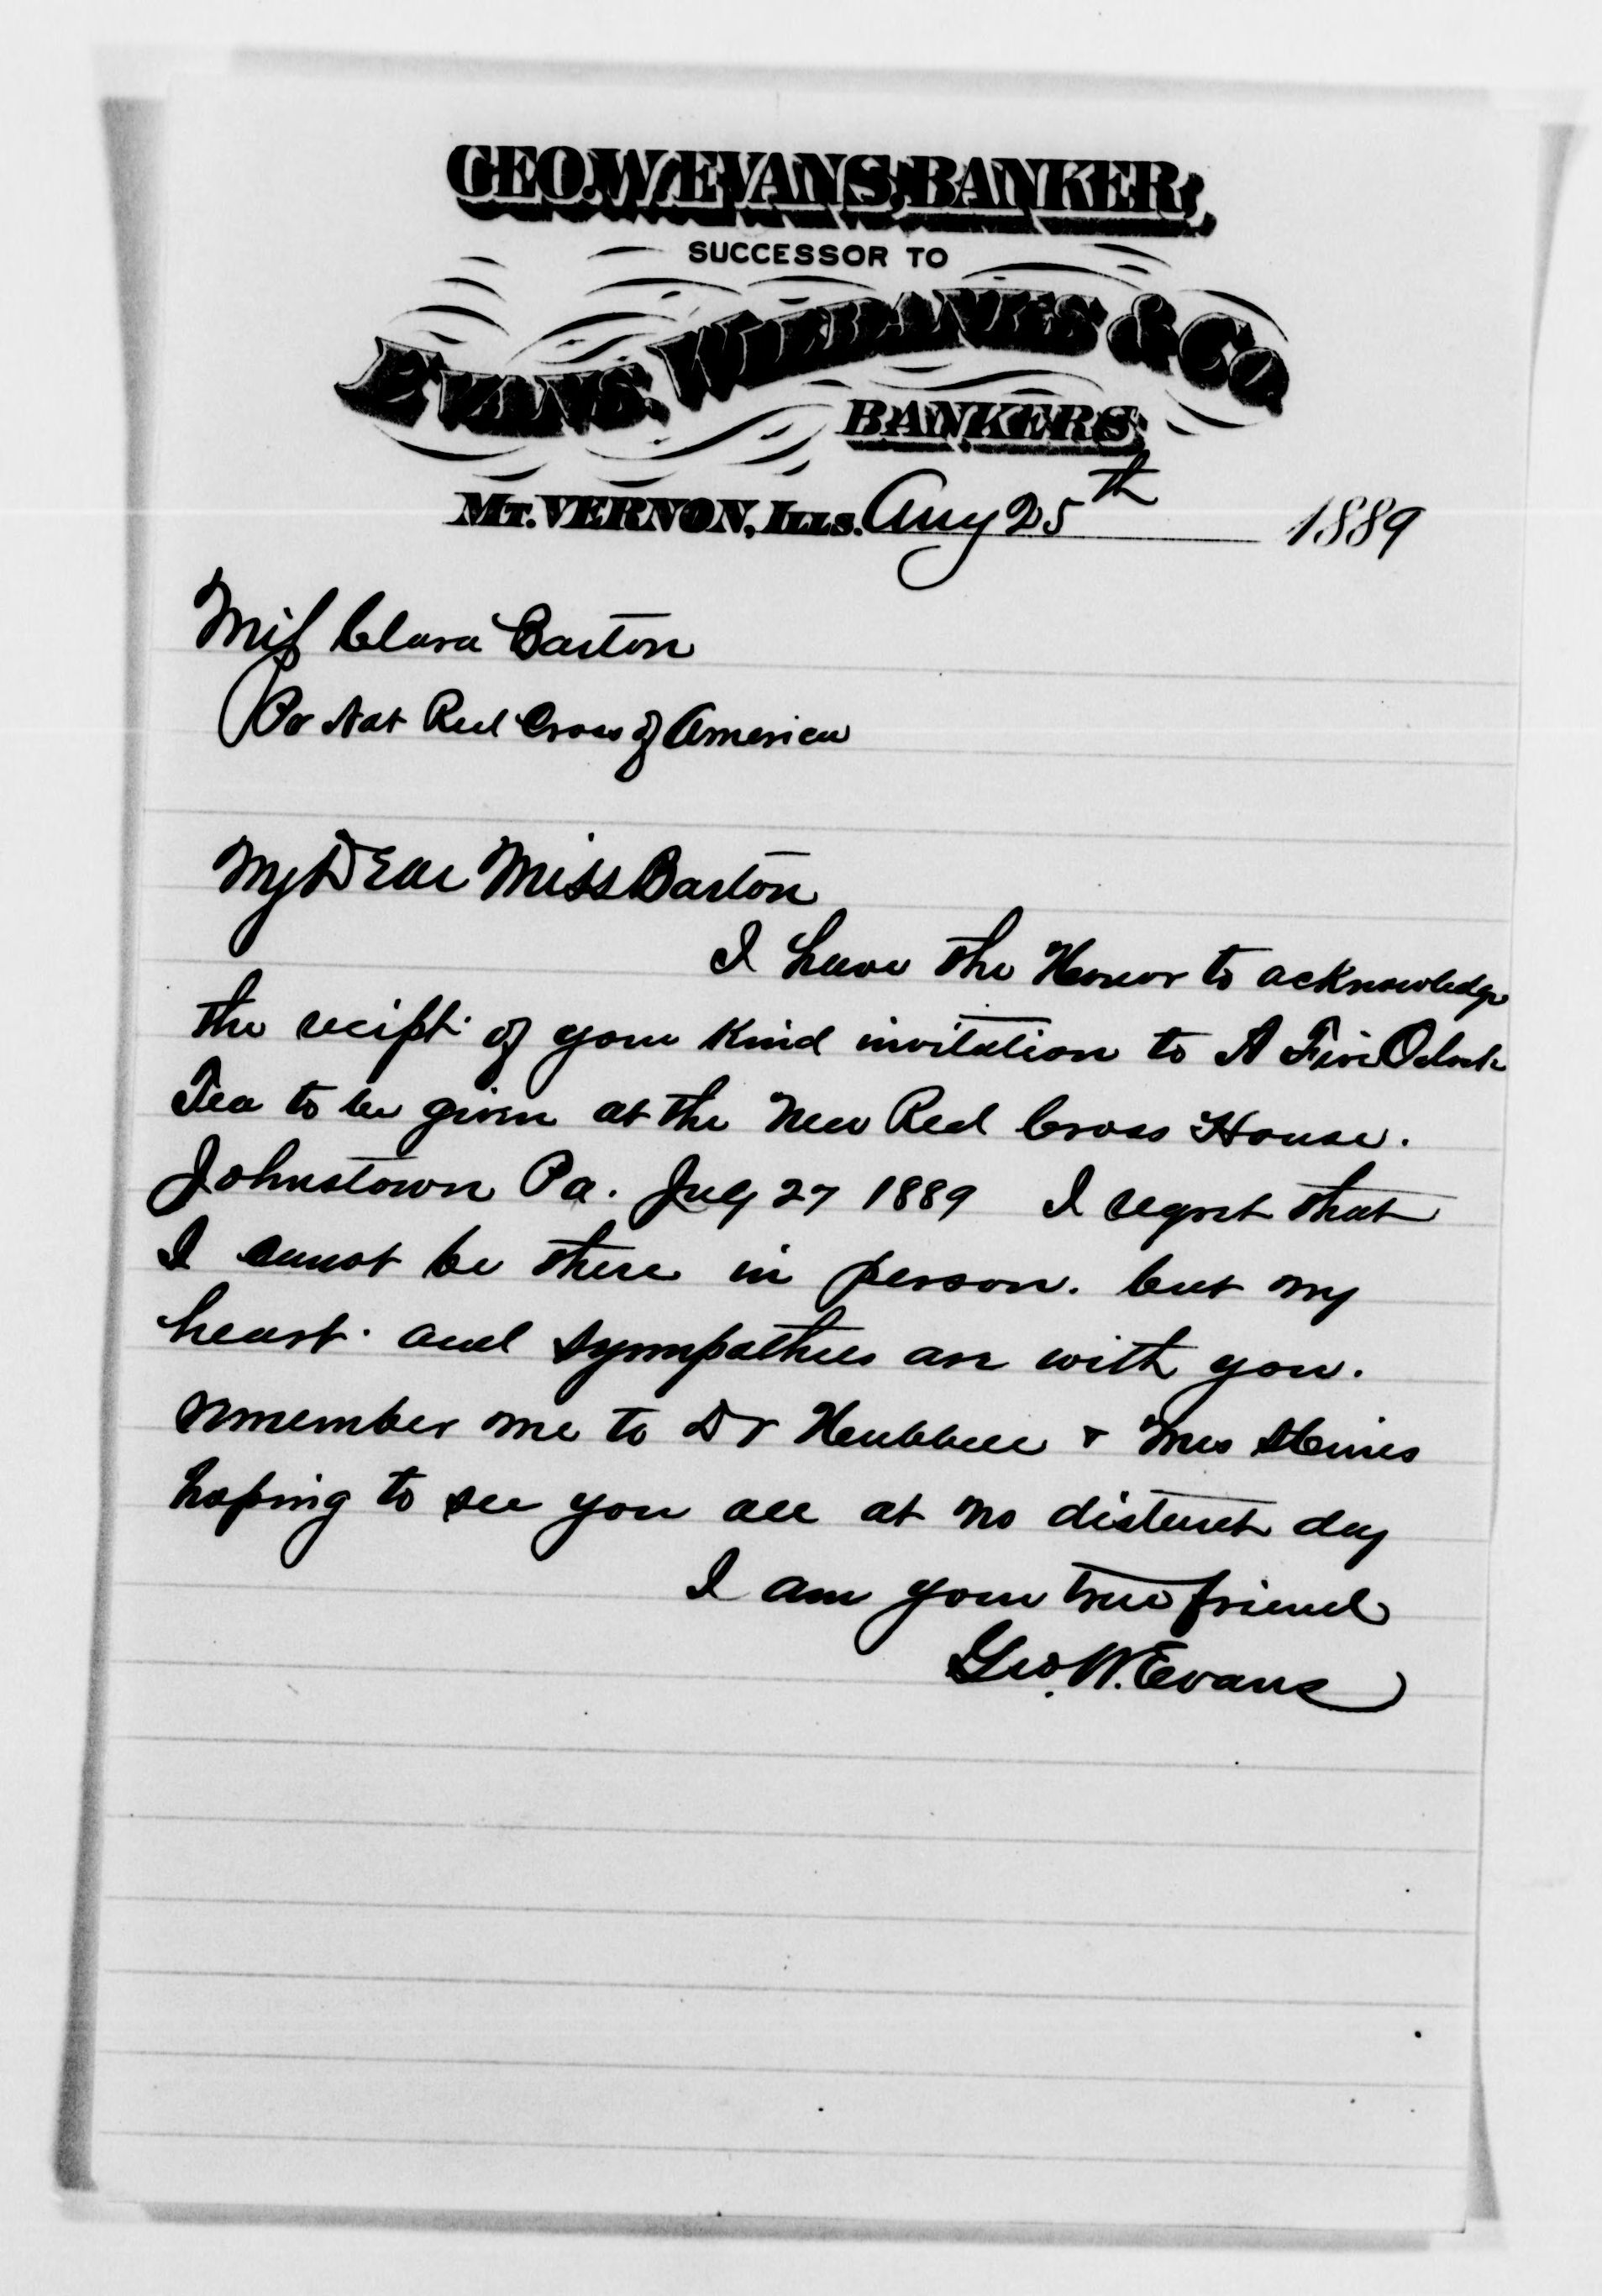 GEO. W. EVANS, BANKER,
SUCCESSOR TO
EVANS, WILBANKS & CO.
BANKERS,
MT. VERNON, ILLS. Aug 25th 1889
Miss Clara Barton
Pr Nat Red Cross of America
My Dear Miss Barton
I have the Honor to acknowledge
the recipt of your Kind invitation to A Five Oclock
Tea to be given at the New Red Cross House.
Johnstown Pa. July 27 1889 I regret that
I canot be there in person. but my
heart. and sympathies are with you.
remember me to Dr Hubbell & Mrs
hoping to see you all at no distant day
I am your true friend
Geo. W. Evans